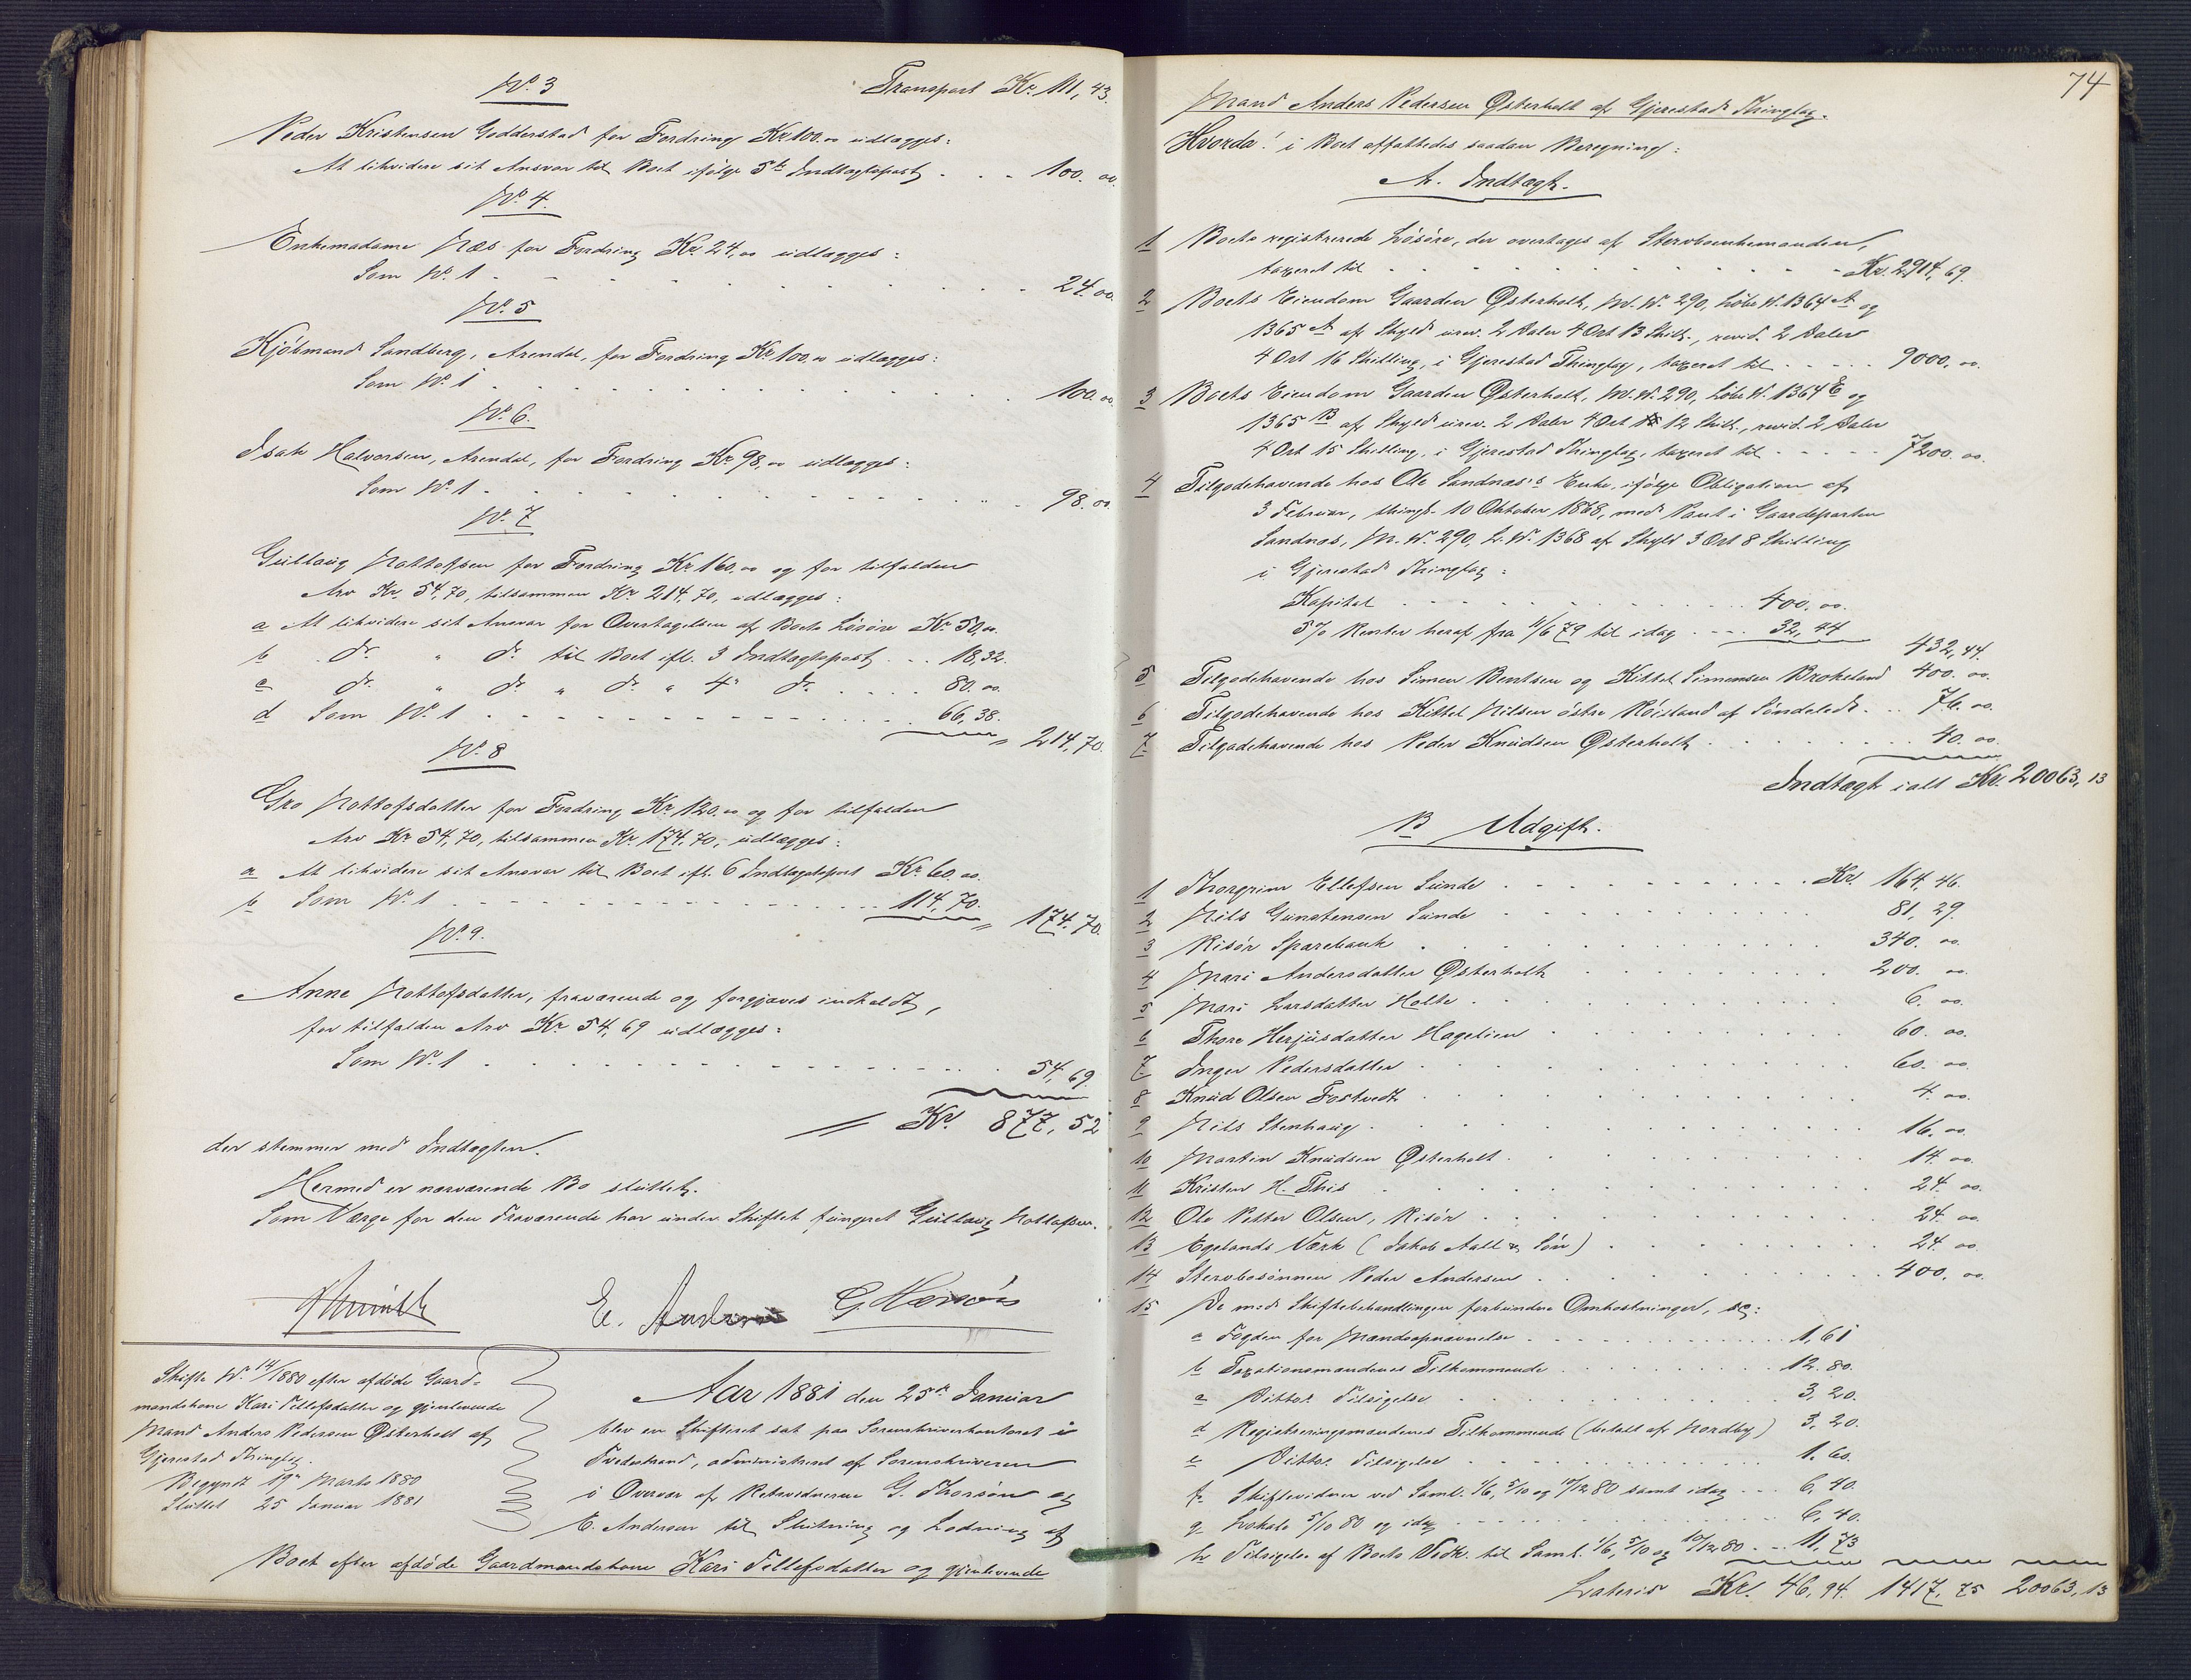 No. 3
Transport Kr. 111,43.
Peder Kristensen Godderstad for Fordring Kr 100.00 udlægges:
At likvidere sit Ansvar til Boet ifølge 5te Indtægtspost . . . 100.00.
No. 4.
Enkemadame Næs for Fordring Kr. 24,00 udlægges:
Som No. 1 . . . 24.00.
No. 5
Kjøbmand Sandberg, Arendal, for Fordring Kr 100.00 udlægges:
Som No. 1 . . . 100.00.
No. 6.
Isak Halvorsen, Arendal, for Fordring Kr 98.00 udlægges:
Som No. 1 . . . 98.00.
No. 7
Gullaug Nottofsen for Fordring Kr 160.00 og for tilfalden
Arv Kr. 54,70, tilsammen Kr 214,70, udlægges:
a At likvidere sit Ansvar for Overtagelsen af Boets Løsøre Kr. 50,00.
b do. " do. til Boet ifl. 3 Indtægtspost . . . 18,32.
c do. " do. " do. " 4de do. . . . 80.00.
d Som No. 1 . . . 66,38.
= 214,70.
No. 8
Gro Nottofsdatter for Fordring Kr 120.00 og for tilfalden
Arv Kr 54,70, tilsammen Kr. 174,70, udlægges:
a At likvidere sit Ansvar til Boet ifl. 6 Indtægtspost Kr. 60.00.
b Som No. 1 . . . 114,70.
= 174.70.
No. 9.
Anne Nottofsdatter, fraværende og forgjæves indkaldt,
for tilfalden Arv Kr 54,69 udlægges:
Som No. 1 . . . 54,69.
= Kr. 877,52
der stemmer med Indtægten.
Hermed er nærværende Bo sluttet.
Som Værge for den Fraværende har under Skiftet fungeret Gullaug Nottofsen.
E. Andersen
Skifte No. 14/1880 efter afdøde Gaard-
mandskone Kari Tellefsdatter og gjenlevende
Mand Anders Pedersen Østerholt af
Gjerestad Thinglag.
Begyndt 19de Marts 1880
Sluttet 25 Januar 1881
Aar 1881 den 25de Januar
blev en Skifteret sat paa Sorenskriverkontoret i
Tvedestrand, administreret af Sorenskriveren
i Overvær af Retsvidnerne G. Thorsøn og
E. Andersen til Slutning og Lodning af
Boet efter afdøde Gaardmandskone Kari Tellefsdatter og gjenlevende
74
Mand Anders Pedersen Østerholt af Gjerestads Thinglag.
Hvorda! i Boet affattedes saadan Beregning:
A. Indtægt.
1 Boets registrerede Løsøre, der overtages af Stervboenkemanden,
taxeret til . . . Kr. 2914,69.
2 Boets Eiendom Gaarden Østerholt, M. No. 290, Løbe No. 1364 A og
1365 A af Skyld urev. 2 Daler 4 Ort 13 Skill., revid. 2 Daler
4 Ort 16 Skilling, i Gjerestad Thinglag, taxeret til . . . 9000.00.
3 Boets Eiendom Gaarden Østerholt, M. No. 290, Løbe No. 1364 E og
1365 B af Skyld urev. 2 Daler 4 Ort 12 Skill., revid. 2 Daler
4 Ort 15 Skilling, i Gjerestad Thinglag, taxeret til . . . 7200.00.
4 Tilgodehavende hos Ole Sandnæs's Enke, ifølge Obligation af
3 Februar, thingl. 10 Oktober 1868, med Pant i Gaardeparten
Sandnæs, M. No. 290, L. No. 1368 af Skyld 3 Ort 8 Skilling
i Gjerestads Thinglag:
Kapital . . . 400.00.
5% Renter heraf fra 11/6 79 til idag . . . 32,44
432,44.
5 Tilgodehavende hos Simen Bentsen og Kittel Simensen Brokeland 400.00.
6 Tilgodehavende hos Kittel Nilsen østre Røisland af Søndeled . . . 76.00.
7 Tilgodehavende hos Peder Knudsen Østerholt . . . 40.00.
Indtægt ialt Kr. 20063,13
B Udgift.
1 Thorgrim Ellefsen Sunde . . . Kr. 164,46.
2 Nils Gunstensen Sunde . . . 81,29.
3 Risør Sparebank . . . 340.00.
4 Mari Andersdatter Østerholt . . . 200.00.
5 Mari Larsdatter Holte . . . 6.00.
6 Thore Herjusdatter Hagelien . . . 60.00.
7 Inger Pedersdatter . . . 60.00.
8 Knud Olsen Fostvedt . . . 4.00.
9 Nils Stenhaug . . . 16.00.
10 Martin Knudsen Østerholt . . . 14.00.
11 Kristen H. This . . . 24.00.
12 Ole Petter Olsen, Risør . . . 24.00.
13 Egelands Værk (Jakob Aall & Søn) . . . 24.00.
14 Stervbosønnen Peder Andersen . . . 400.00.
15 De med Skiftebehandlingen forbundne Omkostninger, sc:
a Fogden for Mændsopnævnelse . . . 1,61
b Taxationsmændenes Tilkommende . . . 12.80.
c Dittos Tilsigelse . . . 3,20.
d Registreringsmændenes Tilkommende (betalt af Nordby) 3,20.
e Dittos Tilsigelse . . . 1.60.
f Skiftevidner ved Saml. 1/6, 5/10 og 10/12 80 samt idag . . . 6,40.
g Lokale 5/10 80 og idag . . . 6,40.
h Tilsigelse af Boets Vedk. til Saml. 1/6, 5/10 og 10/12 80 . . . 11,73
Lateris Kr. 46,94. 1417,75 20063,13